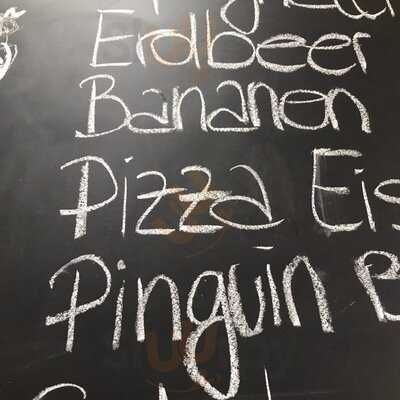 Erdbeer
Bananen
Pizza Eis
Pinguin B